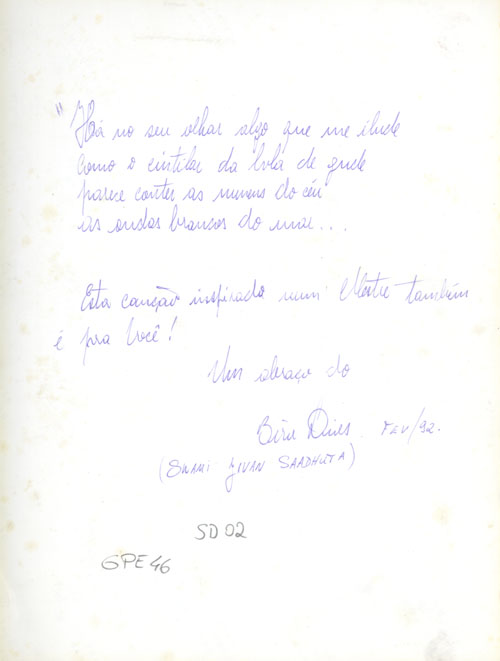 "Há no seu olhar algo que me ilude
como o cintilar da bola de gude
parece conter as nuvens do céu
as ondas brancas do mar...
Esta canção inspirada num Mestre também
é pra Você!
Um abraço do
Dines FEV/92.
(SWAMI JIVAN SAADHUTA)
SD 02
GPE 46